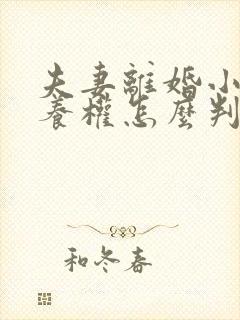 夫妻離婚小
養權怎麼判
和冬春